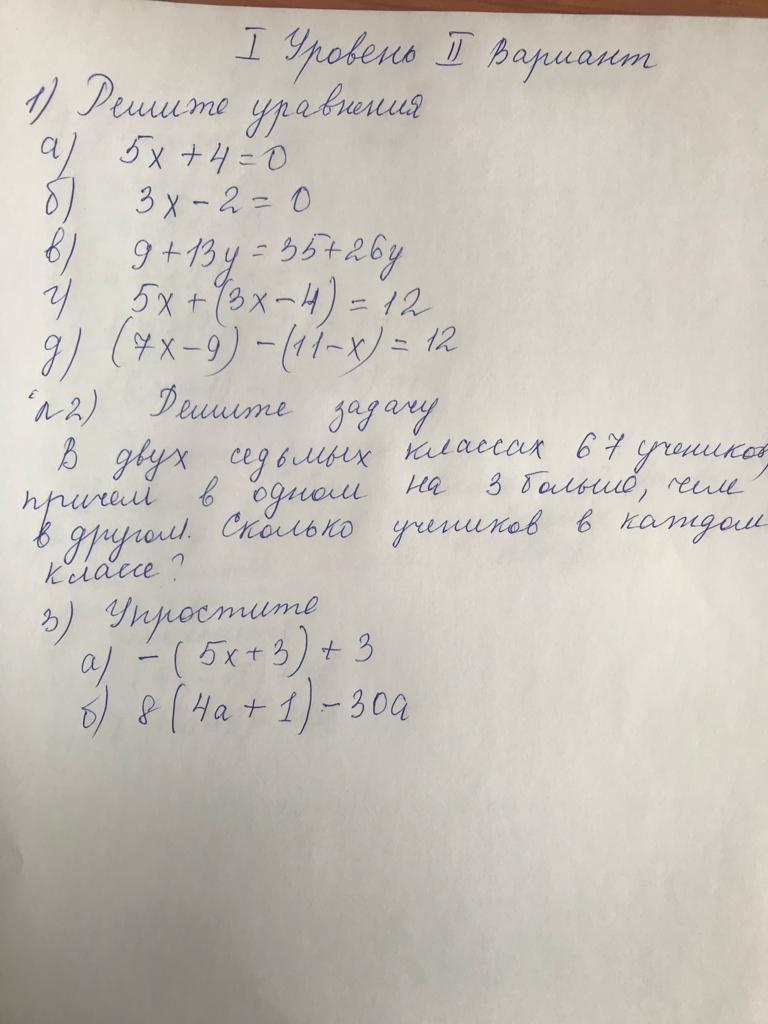 I Уровень II Вариант
1) Решите уравнения
а) 5x + 4 = 0
б) 3x - 2 = 0
в) 9 + 13y = 35 + 26y
г) 5x + (3x - 4) = 12
д) (7x - 9) - (11 - x) = 12
№2) Решите задачу
В двух седьмых классах 67 учеников,
причем в одном на 3 больше, чем
в другом. Сколько учеников в каждом
классе?
3) Упростите
а) - (5x + 3) + 3
б) 8 (4a + 1) - 30a